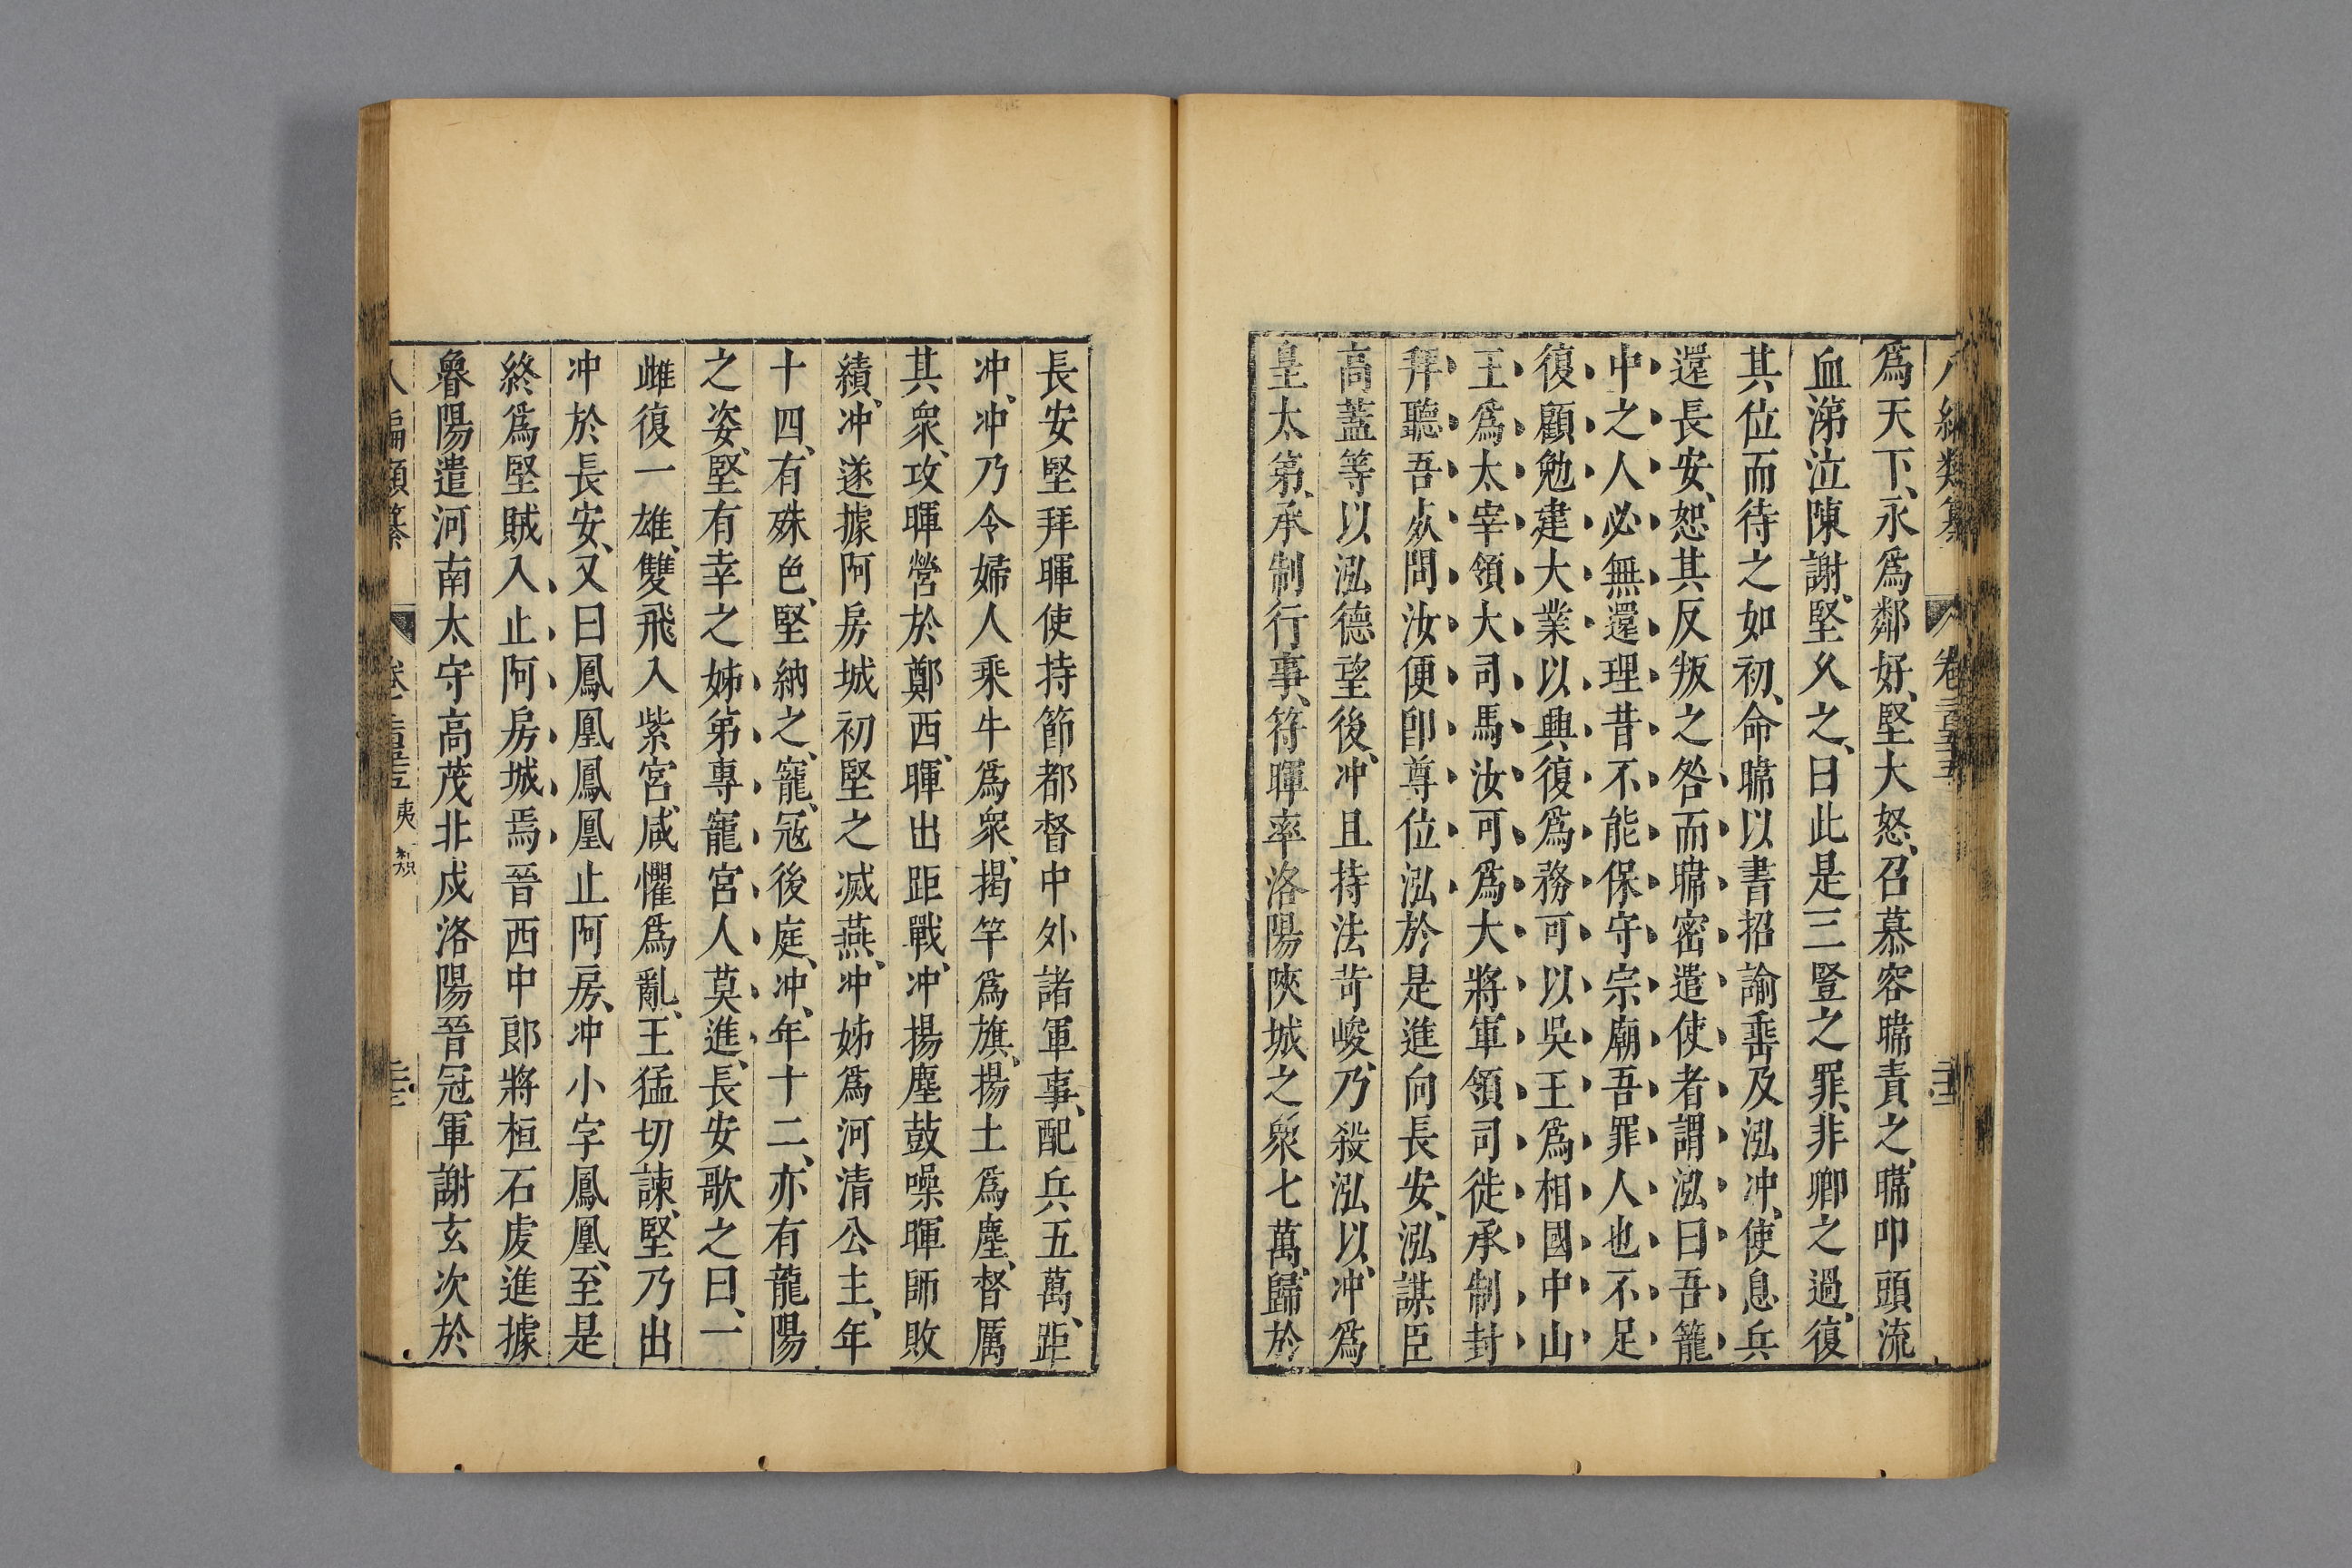 爲天下、永爲鄰好、堅大怒、召慕容暐責之、暐叩頭流
血涕泣陳謝、堅久之、曰此是三豎之罪、非卿之過、復
其位而待之如初、命暐以書招諭垂及泓冲、使息兵
還長安、恕其反叛之咎而暐密遣使者謂泓曰吾籠
中之人必無還理昔不能保守宗廟吾罪人也不足
復顧勉建大業以興復爲務可以吳王爲相國中山
王爲太宰領大司馬汝可爲大將軍領司徒承制封
拜聽吾死問汝便卽尊位泓於是進向長安、泓謀臣
高蓋等以泓德望後、冲且持法苛峻、乃殺泓以、冲爲
皇太第、承制行事、符暉率洛陽陝城之衆七萬、歸於
長安堅拜暉使持節都督中外諸軍事、配兵五萬、距
冲、冲乃令婦人乘牛爲衆、揭竿爲旗、揚土爲塵、督厲
其衆、攻暉營於鄭西、暉出距戰、冲、揚塵鼓噪暉師敗
績、冲遂據阿房城初堅之滅燕、冲姊爲河清公主、年
十四、有殊色、堅納之、寵、冠後庭、冲、年十二、亦有龍陽
之姿、堅有幸之姊第專寵宮人莫進、長安歌之曰、一
雌復一雄、雙飛入紫宮、咸懼爲亂、王猛切諫、堅乃出
冲於長安、又曰鳳凰鳳凰止阿房、冲小字鳳凰、至是
終爲堅賊入止阿房城焉晉西中郎將桓石虔進據
魯陽遣河南太守高茂北戍洛陽晉冠軍謝玄次於
編類纂 夷類